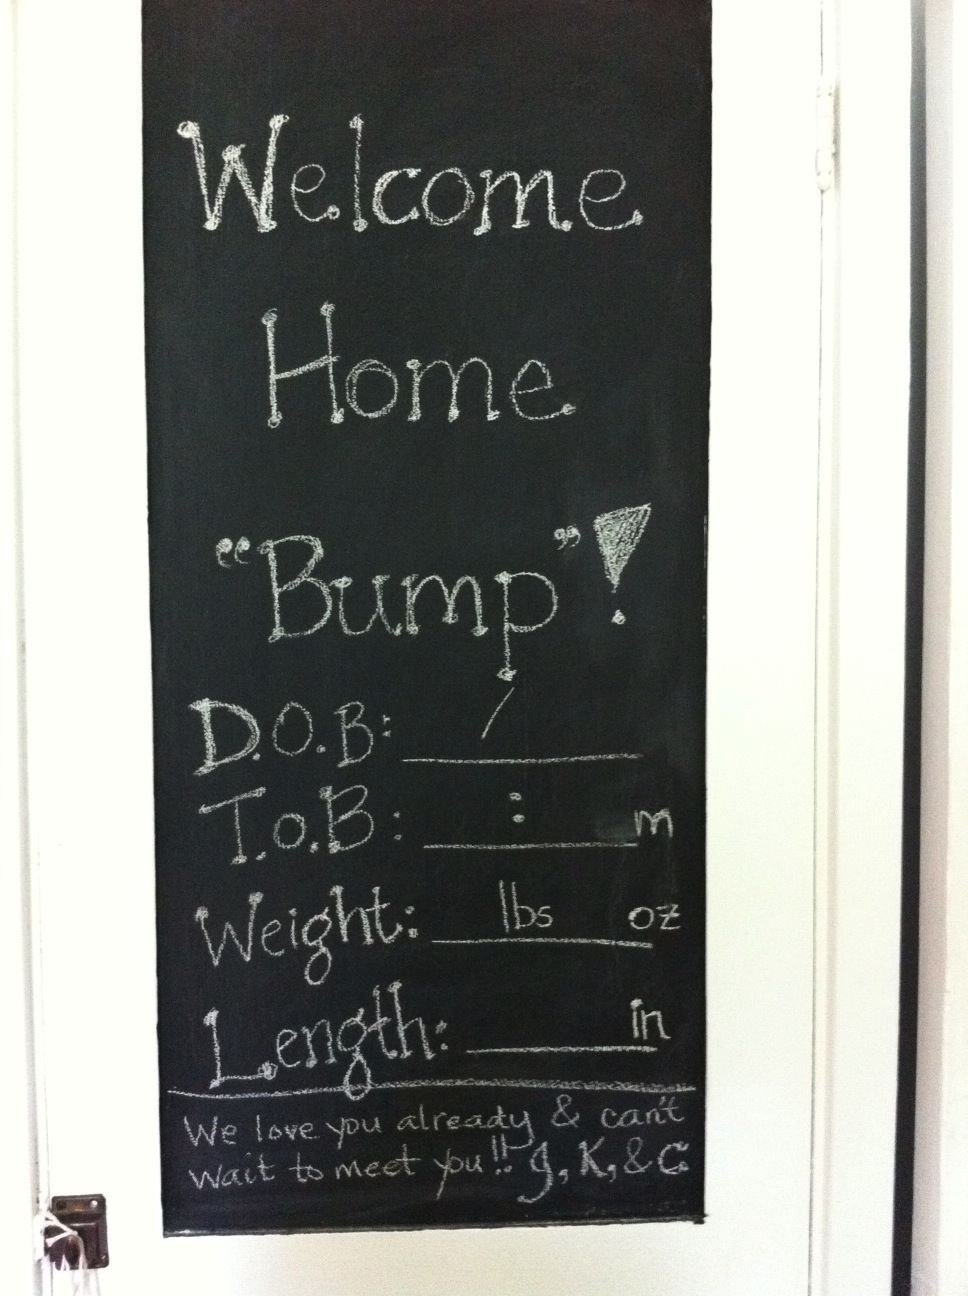 Welcome
Home
“Bump”!
D.O.B: /
T.O.B: : m
Weight: lbs oz
Length: in
We love you already & can't
wait to meet you!! J, K, & C